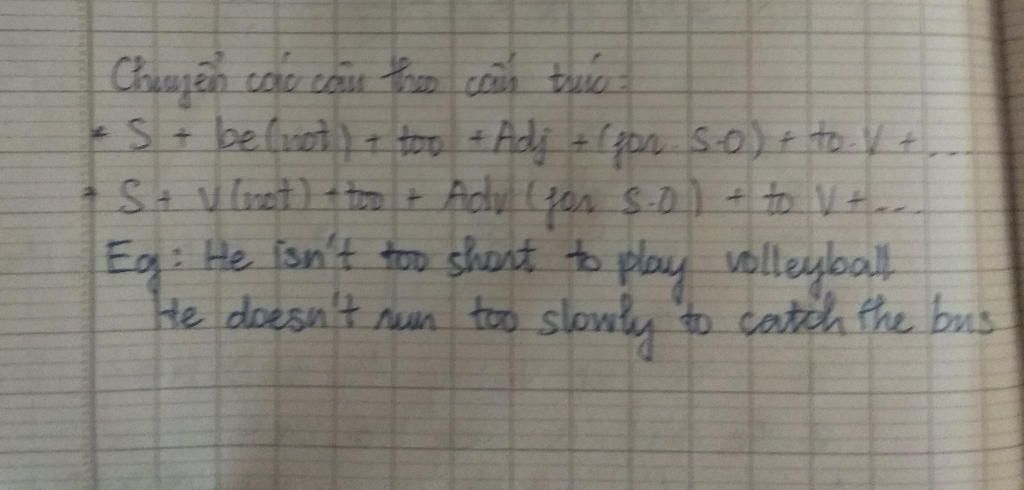 Chuyển các câu theo cấu trúc:
* S + be (not) + too + Adj + (for S.O) + to V + ...
* S + V (not) + too + Adv (for S.O) + to V + ...
Eg: He isn't too short to play volleyball
He doesn't run too slowly to catch the bus